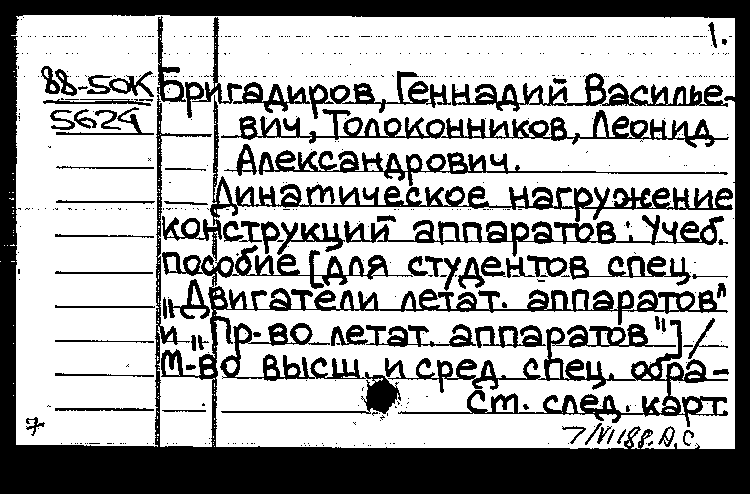 1.
88-50К Бригадиров, Геннадий Василье-
5624 вич, Толоконников, Леонид
Александрович.
Динатическое нагружение
конструкций аппаратов : Учеб.
пособие [для студентов спец.
„Двигатели летат. аппаратов"
и „Пр-во летат. аппаратов"] /
М-во высш. и сред. спец. обра-
Ст. след. карт.
7 7/VI 88. А.С.